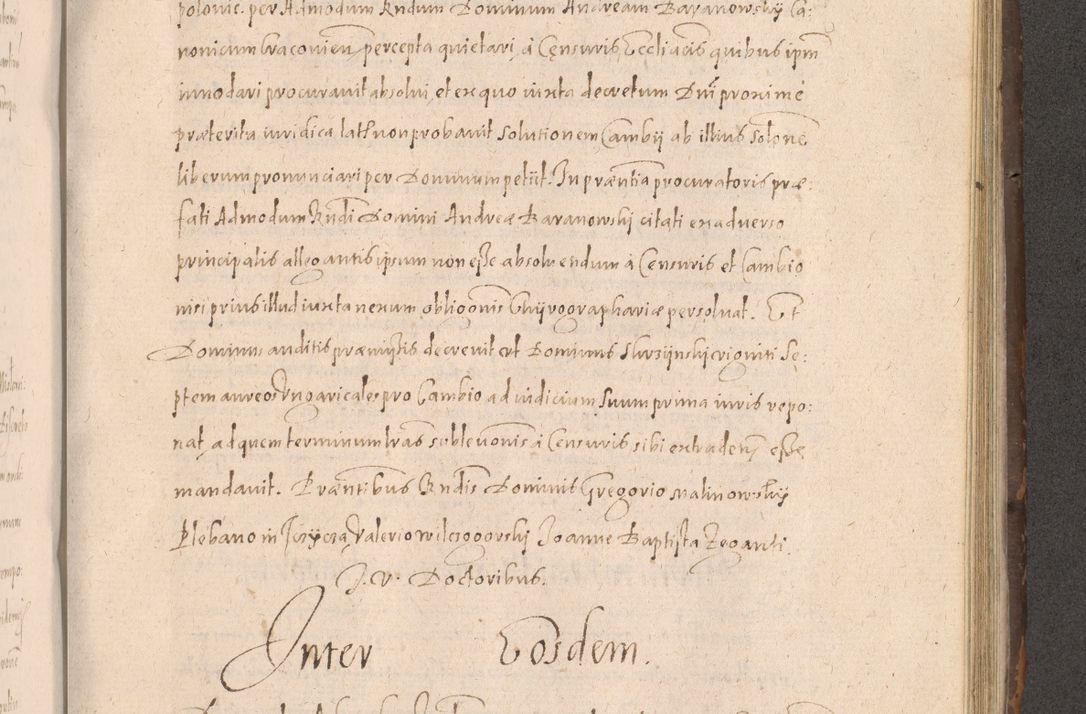 polonic. per Admodum Rndum Dominum Andream Baranowsky Ca:
nonicum Cracovien̄ percepta quietari à Censuris Eccliācis quibus ipm̄
innodari procuravit absolvi, et ex quo iuxta decretum Dn̄i proximè
præteritu iuridica lat̄ non probavit solutionem Cambij ab illius solōne
liberum pronunciari per Dominum petiit. In præn̄tia procuratoris præ:
fati Admodum Rndi Domini Andreæ Baranowski citati ex adverso
principalis allegantis ipsum non eſse absolvendum à Censuris et Cambio
nisi prius illud iuxta nexum obligōnis Chyrographariæ persolvat. Et
Dominus auditis præmiſsis decrevit ut Dominus Skrzijnski viginti se:
ptem aureos Vngaricales pro Cambio ad iudicium suum prima iuris repo:
nat, ad quem terminum lrās sublevōnis à Censuris sibi extraden̄ eſse
mandavit. Præn̄tibus Rndis Dominis Gregorio Malinowsky
Plebano in Valerio Joanne Baptiſta Zeganti
J. V. Doctoribus.
Inter Eosdem.